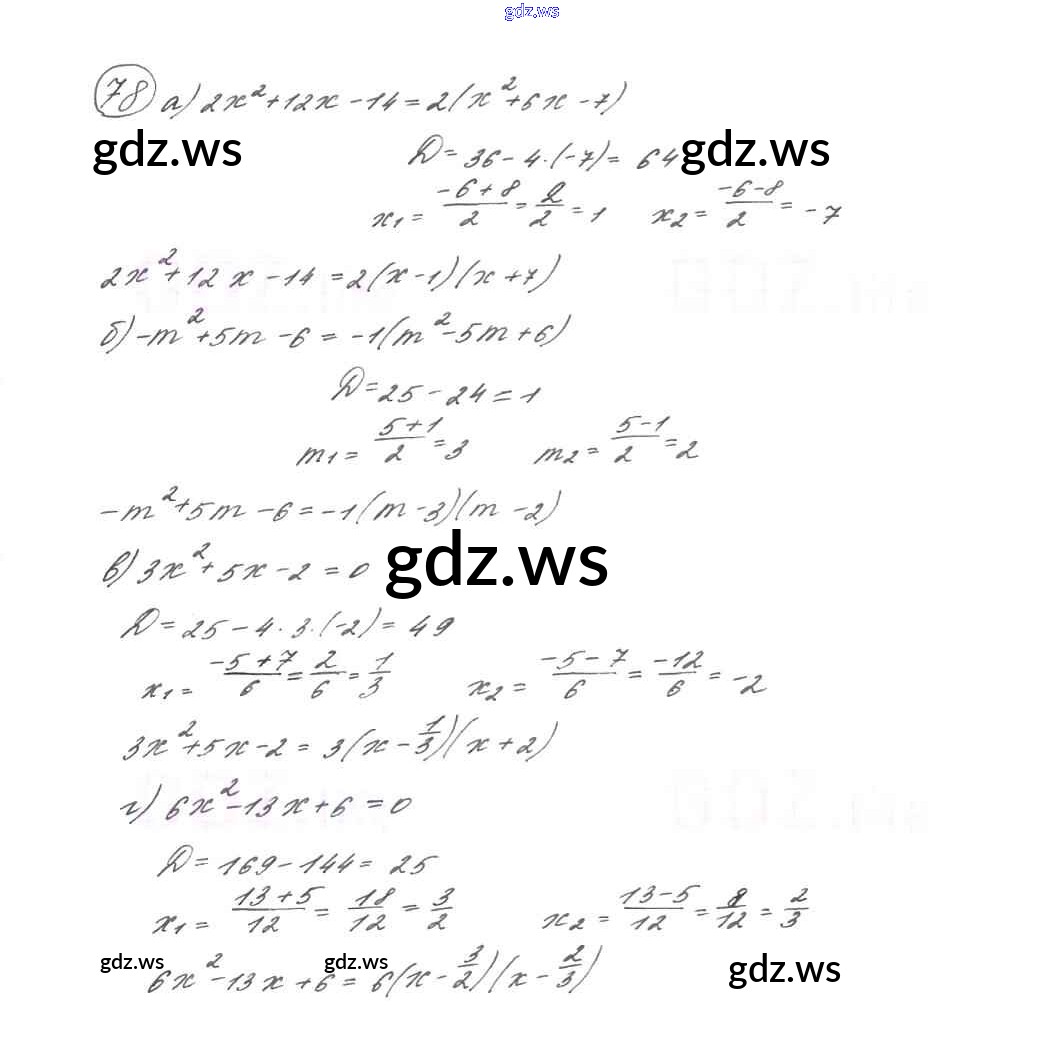 gdz.ws
78 а) 2x²+12x-14=2(x²+6x-7)
gdz.ws D=36-4·(-7)= 64 gdz.ws
x₁= (-6+8)/2 = 2/2 = 1 x₂= (-6-8)/2 = -7
2x²+12x-14=2(x-1)(x+7)
б) -m²+5m-6=-1(m²-5m+6)
D=25-24=1
m₁= (5+1)/2 =3 m₂= (5-1)/2 =2
-m²+5m-6=-1(m-3)(m-2)
gdz.ws
в) 3x²+5x-2=0
D=25-4·3·(-2)=49
x₁= (-5+7)/6 = 2/6 = 1/3 x₂= (-5-7)/6 = -12/6 = -2
3x²+5x-2=3(x-1/3)(x+2)
г) 6x²-13x+6=0
D=169-144=25
x₁= (13+5)/12 = 18/12 = 3/2 x₂= (13-5)/12 = 8/12 = 2/3
gdz.ws gdz.ws gdz.ws
6x²-13x+6=6(x-3/2)(x-2/3)